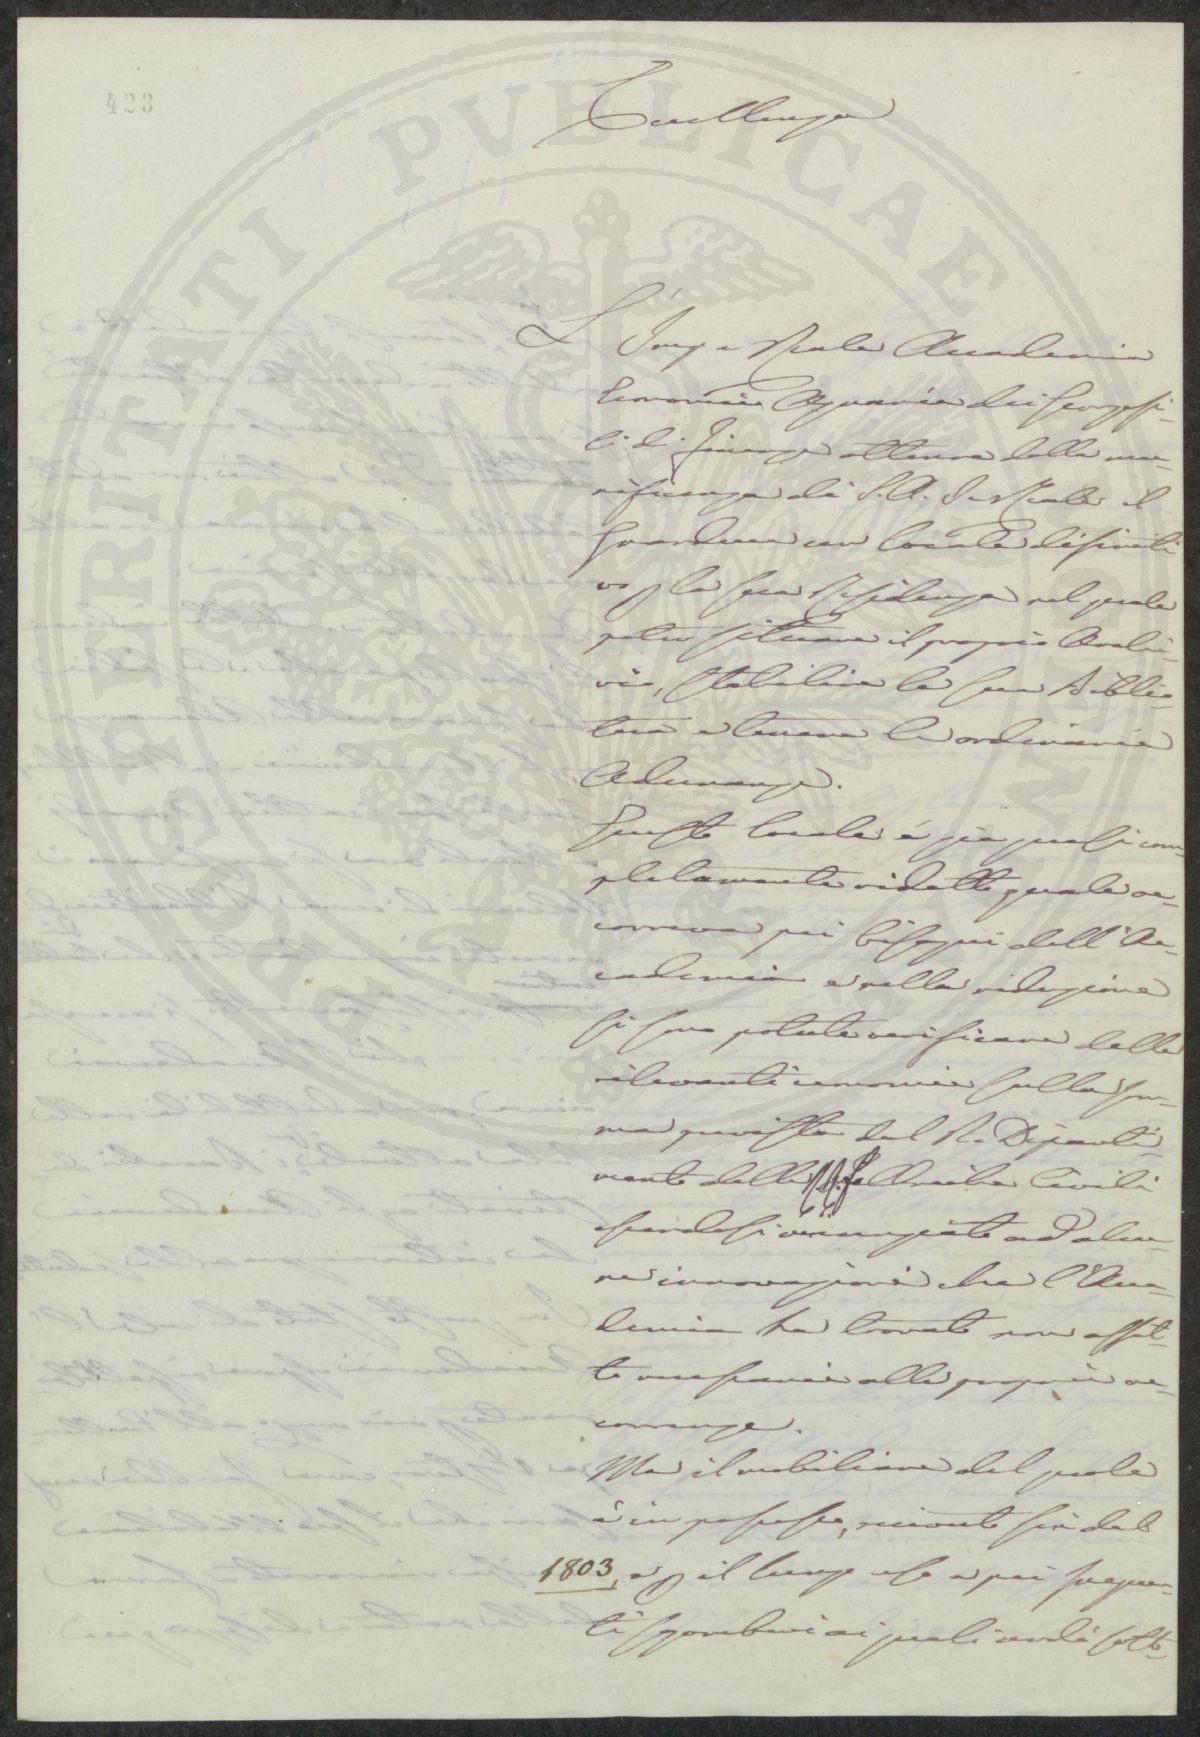 423
Eccellenza
L'Imp. e Reale Accademia
Economico Agraria dei Georgofi-
li di Firenze ottenne dalla mu-
nificenza di S. A. I. e Reale il
Granduca un locale definiti
vo p la sua Residenza nel quale
potere situare il proprio Archi-
vio, stabilire la sua Biblio-
teca e tenere le ordinarie
Adunanze.
Questo locale è già quasi com-
pletamente ridotto quale oc-
correva pei bisogni dell'Ac-
cademia e nella riduzione
si sono potute verificare delle
rilevanti economie sulla som-
ma prevista dal R. Diparti-
mento delle RR. Fabbriche Civili
essendosi rinunziato ad alcu-
ne innovazioni che l'Acca-
demia ha trovato non affat-
to necessarie alle proprie oc-
correnze.
Ma il mobiliare del quale
è in possesso, riunito fin dal
1803, e p il lungo uso e pei frequen-
ti sgomberi ai quali andò sotto-
PROSPERITATI PVBLICAE AVGENDAE